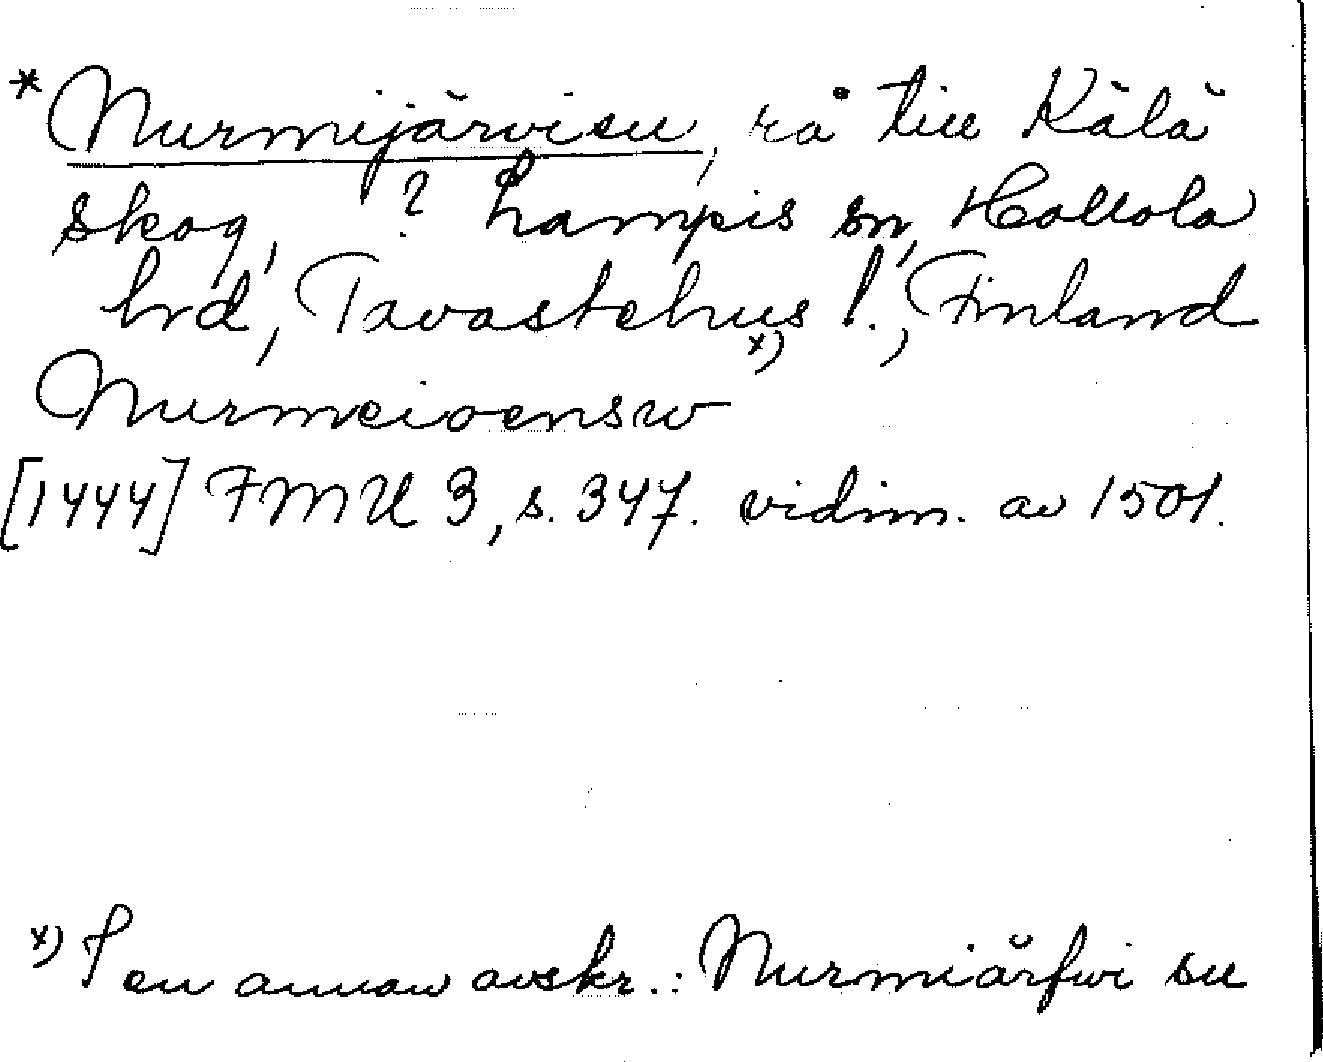 * Nurmijärvisu, rå till Kälä
skog, ? Lampis sn, Hollola
hrd, Tavastehus l., Finland
Nurmeioensw x)
[1444] FMU 3, s. 347. vidim. av 1501.
x) I en annan avskr.: Nurmiärfwi su